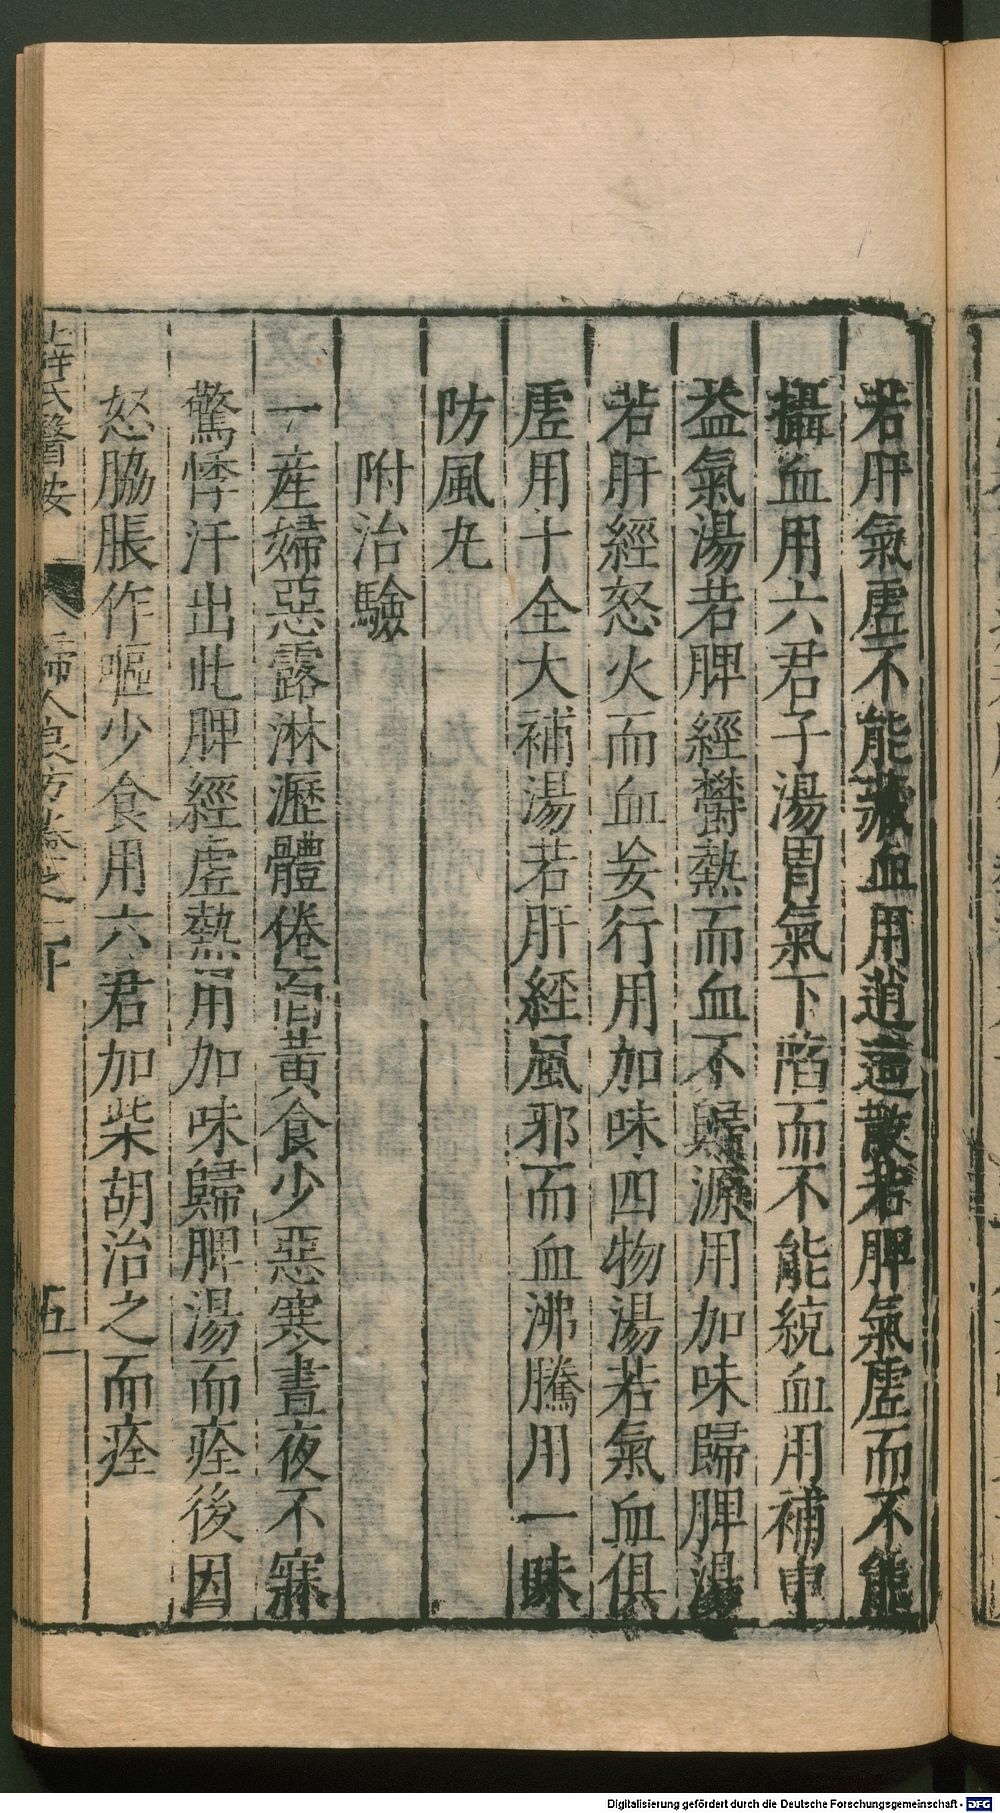 若肝氣虛不能藏血用逍遙散若脾氣虛而不能
攝血用六君子湯胃氣下陷而不能統血用補中
益氣湯若脾經鬱熱而血不歸源用加味歸脾湯
若肝經怒火而血妄行用加味四物湯若氣血俱
虛用十全大補湯若肝經風邪而血沸騰用一味
防風丸
附治驗
一産婦惡露淋瀝體倦面黃食少惡寒晝夜不寐
驚悸汗出此脾經虛熱用加味歸脾湯而痊後因
怒脇脹作嘔少食用六君加柴胡治之而痊
氏醫按 婦人良方卷之二十 五
Digitalisierung gefördert durch die Deutsche Forschungsgemeinschaft - DFG